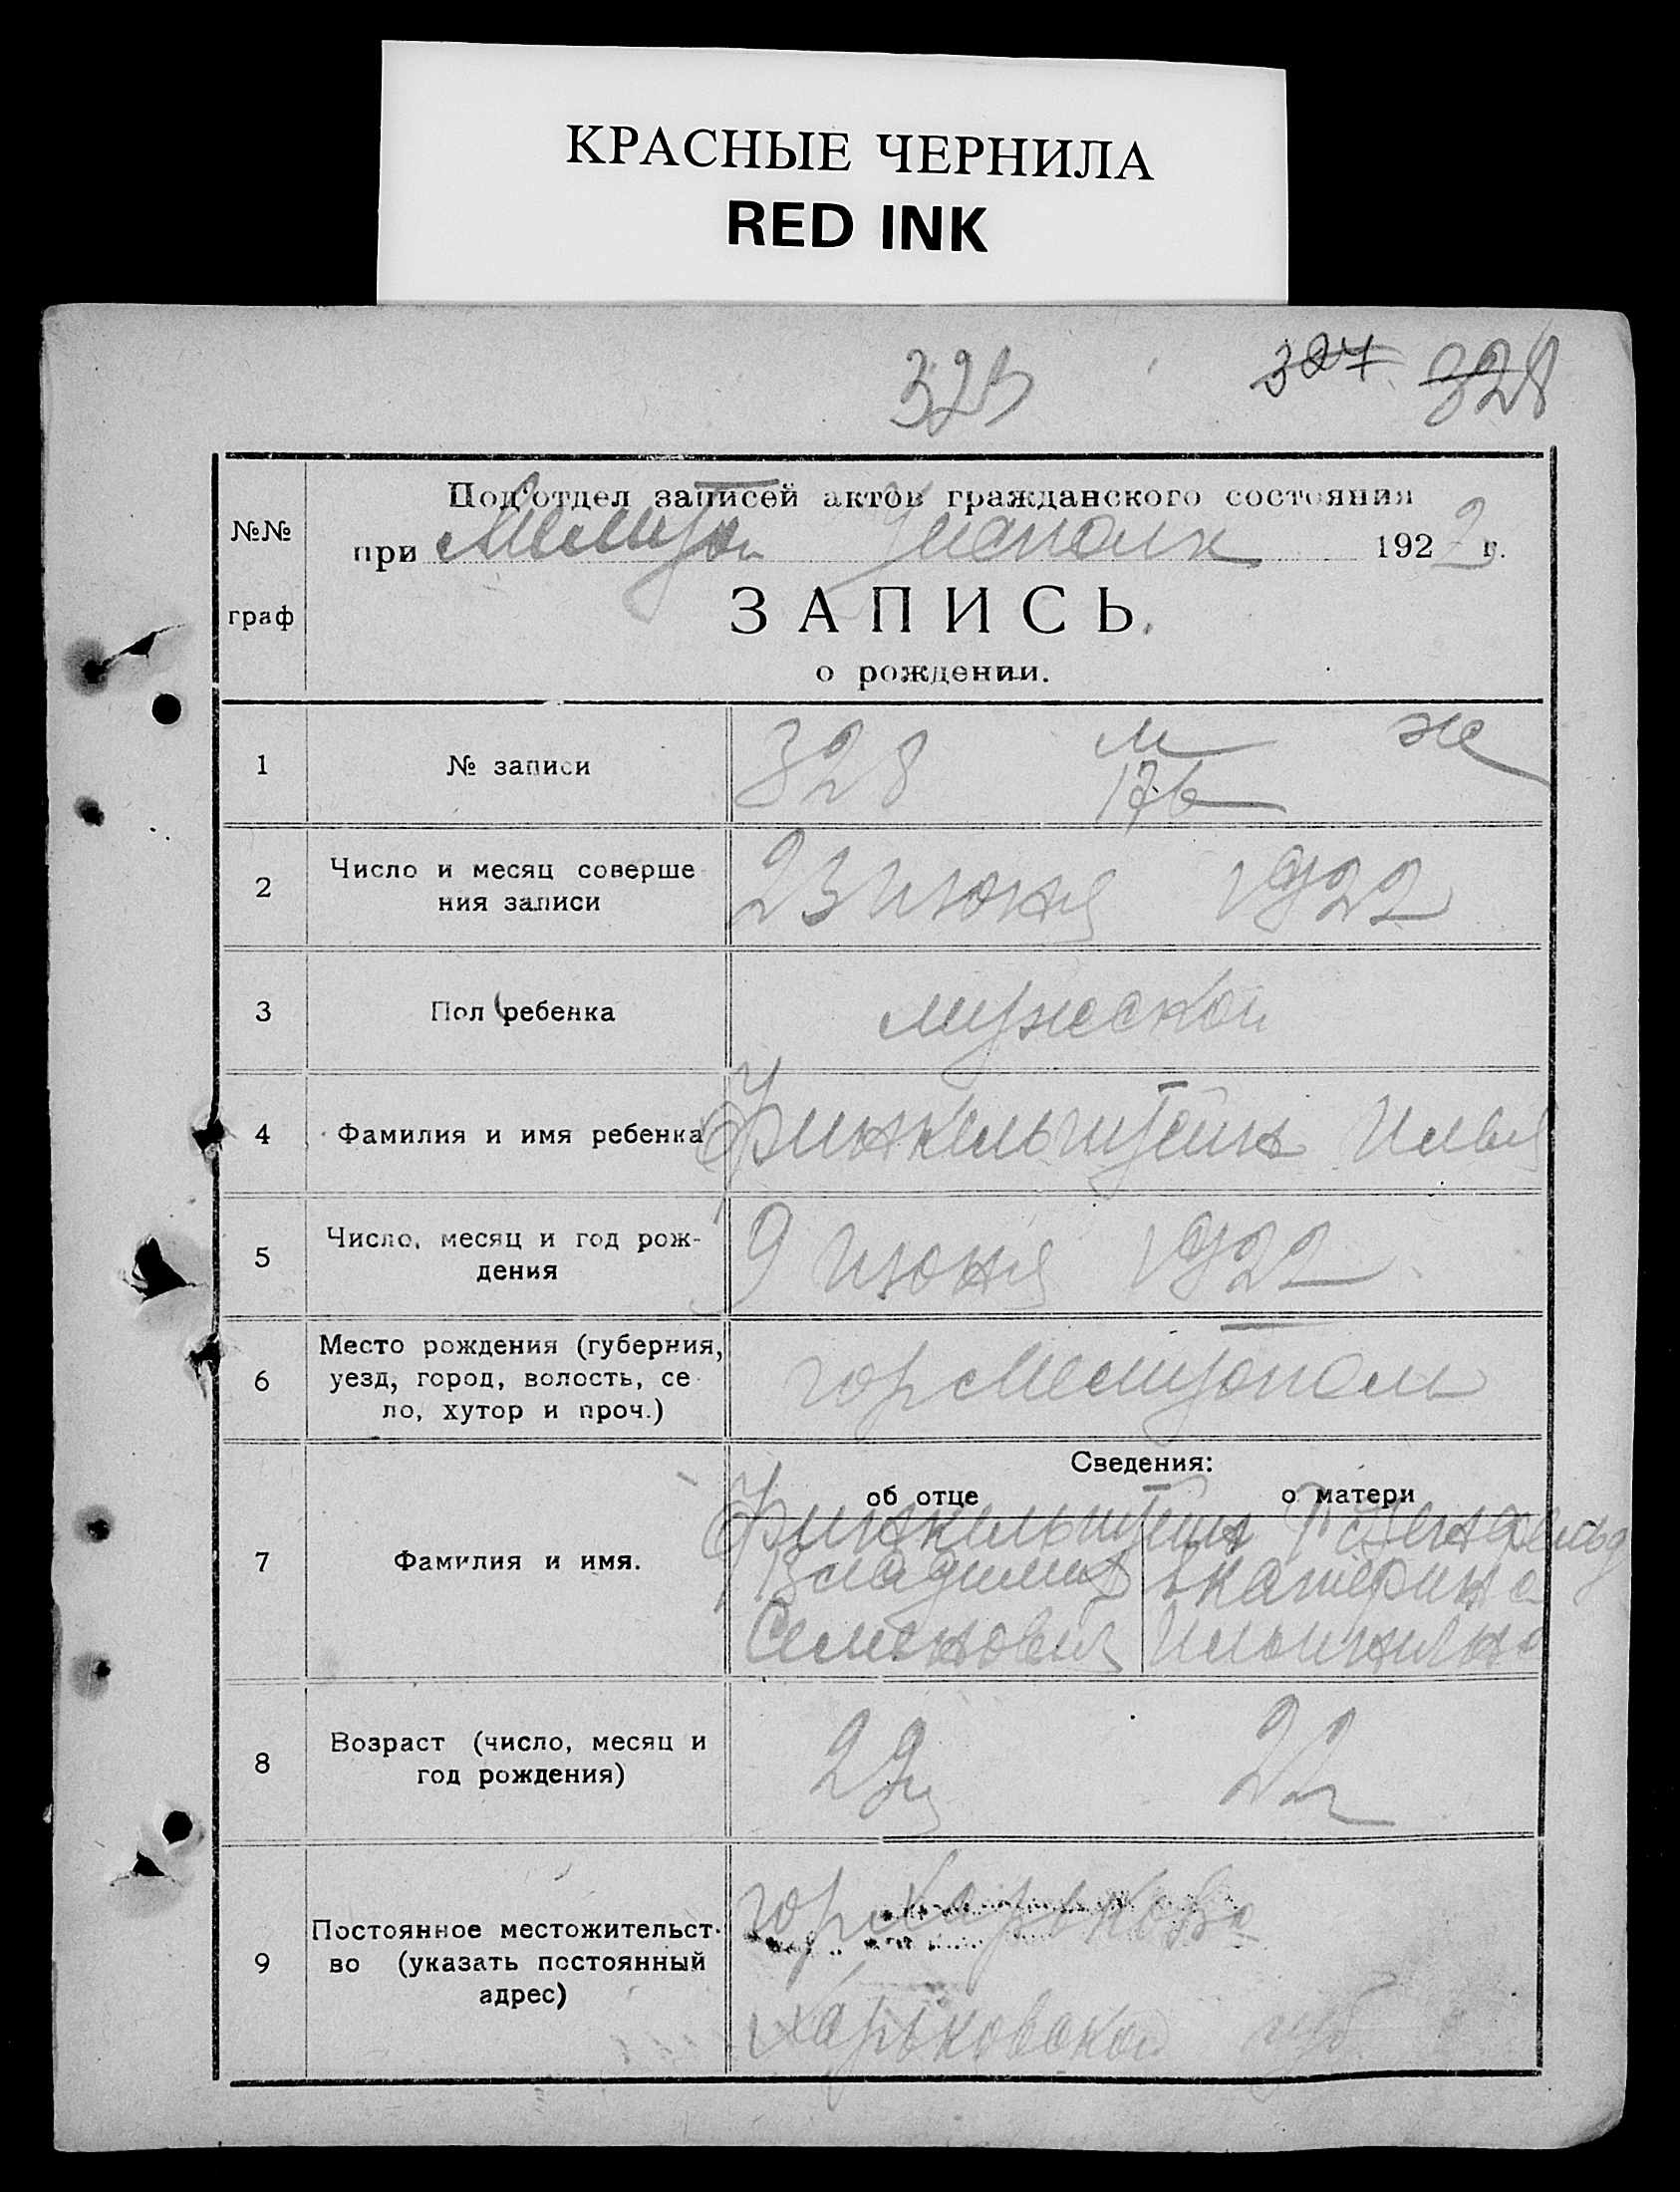 КРАСНЫЕ ЧЕРНИЛА
RED INK
323 327 328
№№ граф
Под'отдел записей актов гражданского состояния
при Мелитоп Уисполк 1922 г.
ЗАПИСЬ
о рождении.
1 № записи 328 м 176 ж
2 Число и месяц соверше
ния записи 23 июня 1922
3 Пол ребенка мужской
4 Фамилия и имя ребенка Финкельштейн Илья
5 Число, месяц и год рож-
дения 9 июня 1922
6 Место рождения (губерния,
уезд, город, волость, се
ло, хутор и проч.) гор Мелитополь
Сведения:
об отце о матери
7 Фамилия и имя. Финкельштейн
Владимир Екатерина
Семенович Ильинична
8 Возраст (число, месяц и
год рождения) 29 22
9 Постоянное местожительст-
во (указать постоянный
адрес) гор Харьков
Харьковской губ